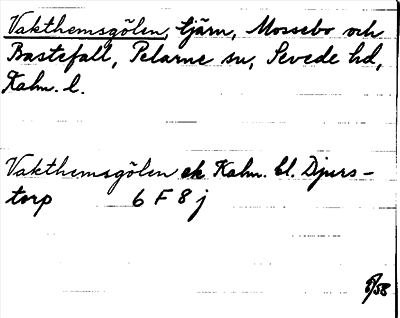 Vakthemsgölen, tjärn, Mossebo och
Bastefall, Pelarne sn, Sevede hd,
Kalm. l.
Vakthemsgölen ek Kalm. bl. Djurs-
torp 6 F 8 j
/58